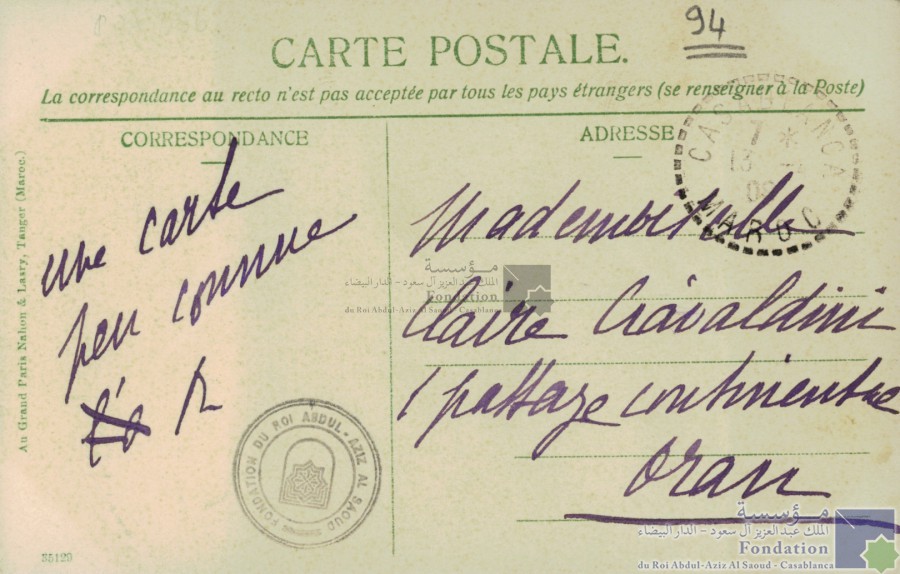 94
CARTE POSTALE.
La correspondance au recto n'est pas acceptée par tous les pays étrangers (se renseigner à la Poste)
CORRESPONDANCE
une carte
peu connue
ADRESSE
Mademoiselle
Claire
1 passage
Oran
CASABLANCA
MAROC
Au Grand Paris Nahon & Lasry, Tanger (Maroc.)
35129
FONDATION DU ROI ABDUL-AZIZ AL SAOUD
مؤسسة
الملك عبد العزيز آل سعود - الدار البيضاء
Fondation
du Roi Abdul-Aziz Al Saoud - Casablanca
مؤسسة
الملك عبد العزيز آل سعود - الدار البيضاء
Fondation
du Roi Abdul-Aziz Al Saoud - Casablanca